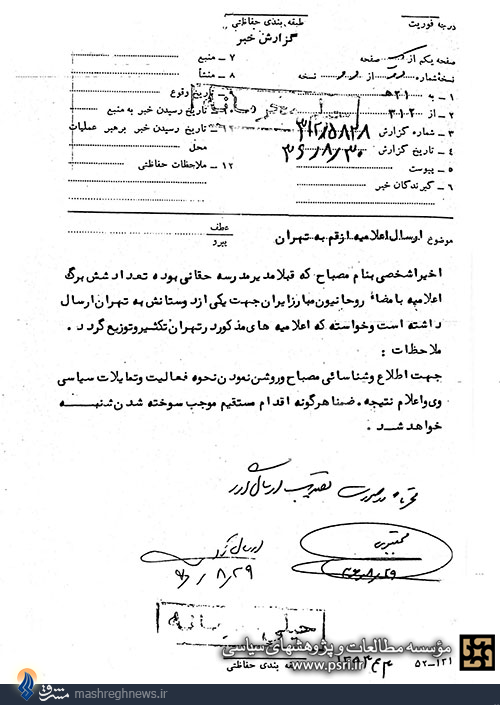 درجه فوریت
طبقه بندی حفاظتی
گزارش خبر
صفحه یکم از یک صفحه
نسخه شماره از نسخه
۱ – به ۲۱۰ هـ
۲ – از ۳۱۲
۳ – شماره گزارش ۳۱۲/۵۸۲۸
۴ – تاریخ گزارش ۳۶/۸/۳۰
۵ – پیوست
۶ – گیرندگان خبر
۷ – منبع
۸ – منشأ
تاریخ وقوع
۱۰ – تاریخ رسیدن خبر به منبع
تاریخ رسیدن خبر برهبر عملیات
محل
۱۲ – ملاحظات حفاظتی
خیلی محرمانه
موضوع ارسال اعلامیه ازقم به تهران
عطف
پیرو
اخیراشخصی بنام مصباح که قبلامدیرمدرسه حقانی بوده تعداد شش برگ
اعلامیه بامضاء روحانیون مبارزایران جهت یکی ازدوستانش به تهران ارسال
داشته است وخواسته که اعلامیه های مذکوردرتهران تکثیروتوزیع گردد .
ملاحظات :
جهت اطلاع وشناسائی مصباح وروشن نمودن نحوه فعالیت وتمایلات سیاسی
وی واعلام نتیجه . ضمناهرگونه اقدام مستقیم موجب سوخته شدن شنبه
خواهد شد .
ارسال گردد
۸/۲۹
۸/۲۹
خیلی محرمانه
طبقه بندی حفاظتی
۵۲–۱۲۱
مؤسسه مطالعات و پژوهشهای سیاسی
www.psri.ir
مشرق
mashreghnews.ir